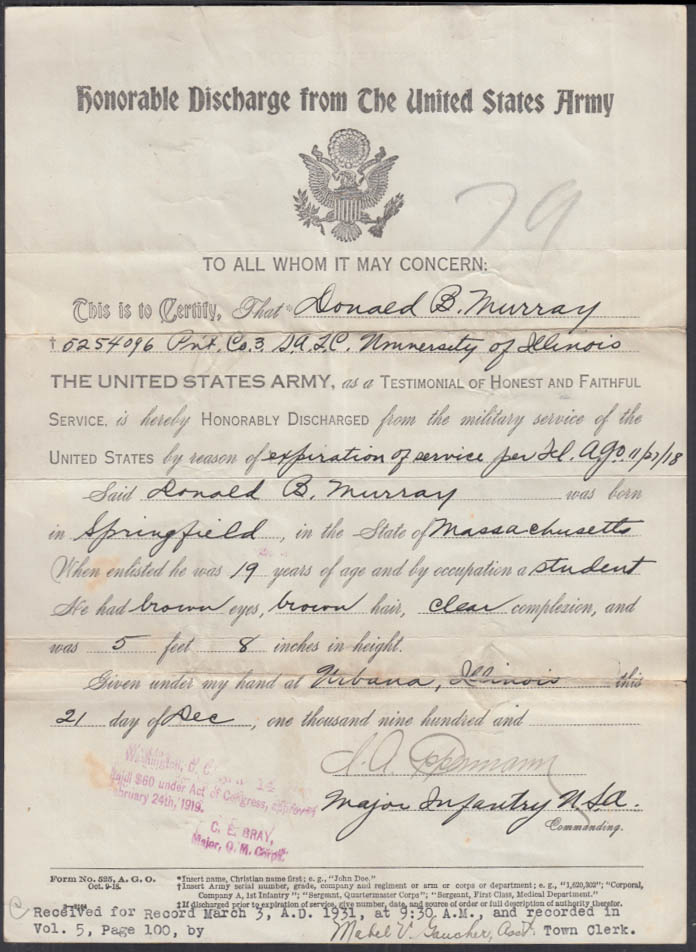 Honorable Discharge from The United States Army
79
TO ALL WHOM IT MAY CONCERN:
This is to Certify, That* Donald B. Murray
† 5254096 Pvt. Co. 3, S.A.T.C. University of Illinois
THE UNITED STATES ARMY, as a TESTIMONIAL OF HONEST AND FAITHFUL
SERVICE, is hereby HONORABLY DISCHARGED from the military service of the
UNITED STATES by reason of expiration of service per Tel. A.G.O. 11/27/18
Said Donald B. Murray was born
in Springfield, in the State of Massachusetts
When enlisted he was 19 years of age and by occupation a student
He had brown eyes, brown hair, clear complexion, and
was 5 feet 8 inches in height.
Given under my hand at Urbana, Illinois this
21 day of Dec, one thousand nine hundred and
Major Infantry U.S.A.
Commanding.
Washington, D. C.
Paid $60 under Act of Congress, approved
February 24th, 1919.
C. E. BRAY,
Major, Q. M. Corps.
Form No. 525, A. G. O.
Oct. 9-18.
*Insert name, Christian name first; e. g., "John Doe."
†Insert Army serial number, grade, company and regiment or arm or corps or department; e. g., "1,620,302"; "Corporal,
Company A, 1st Infantry"; "Sergeant, Quartermaster Corps"; "Sergeant, First Class, Medical Department."
‡If discharged prior to expiration of service, give number, date, and source of order or full description of authority therefor.
Received for Record March 3, A.D. 1931, at 9:30 A.M., and recorded in
Vol. 5, Page 100, by Mabel V. Gaucher, Asst. Town Clerk.